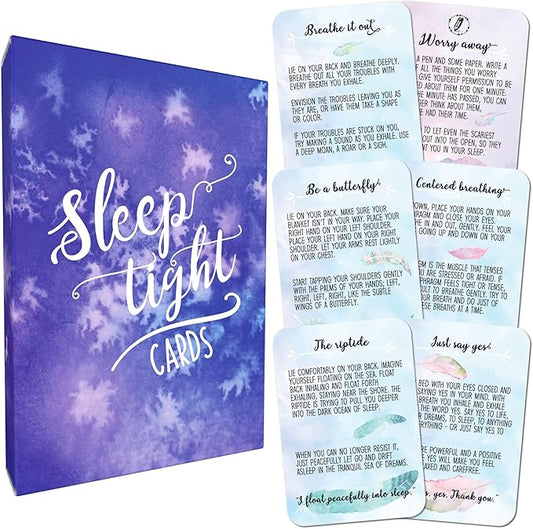 Sleep
tight
CARDS
Breathe it out
LIE ON YOUR BACK AND BREATHE DEEPLY.
BREATHE OUT ALL YOUR TROUBLES WITH
EVERY BREATH YOU EXHALE.
ENVISION THE TROUBLES LEAVING YOU AS
THEY ARE, OR HAVE THEM TAKE A SHAPE
OR COLOR.
IF YOUR TROUBLES ARE STUCK ON YOU,
TRY MAKING A SOUND AS YOU EXHALE. USE
A DEEP MOAN, A ROAR OR A SIGH.
Worry away
A PEN AND SOME PAPER. WRITE A
OF ALL THE THINGS YOU WORRY
GIVE YOURSELF PERMISSION TO BE
ABOUT THEM FOR ONE MINUTE.
MINUTE HAS PASSED, YOU CAN
THINK ABOUT THEM,
HAD THEIR TIME.
TO LET EVEN THE SCARIEST
OUT INTO THE OPEN, SO THEY
YOU IN YOUR SLEEP.
Be a butterfly
LIE ON YOUR BACK. MAKE SURE YOUR
BLANKET ISN'T IN YOUR WAY. PLACE YOUR
RIGHT HAND ON YOUR LEFT SHOULDER.
PLACE YOUR LEFT HAND ON YOUR RIGHT
SHOULDER. LET YOUR ARMS REST LIGHTLY
ON YOUR CHEST.
START TAPPING YOUR SHOULDERS GENTLY
WITH THE PALMS OF YOUR HANDS; LEFT,
RIGHT, LEFT, RIGHT, LIKE THE SUBTLE
WINGS OF A BUTTERFLY.
Centered breathing
DOWN, PLACE YOUR HANDS ON YOUR
AND CLOSE YOUR EYES.
IN AND OUT, GENTLY. FEEL YOUR
GOING UP AND DOWN ON YOUR
IS THE MUSCLE THAT TENSES
YOU ARE STRESSED OR AFRAID. IF
FEELS TIGHT OR TENSE,
TO BREATHE GENTLY. TRY TO
YOUR BREATH AND DO JUST
THESE BREATHS AT A TIME.
The riptide
LIE COMFORTABLY ON YOUR BACK. IMAGINE
YOURSELF FLOATING ON THE SEA. FLOAT
BACK INHALING AND FLOAT FORTH
EXHALING, STAYING NEAR THE SHORE. THE
RIPTIDE IS TRYING TO PULL YOU DEEPER
INTO THE DARK OCEAN OF SLEEP.
WHEN YOU CAN NO LONGER RESIST IT,
JUST PEACEFULLY LET GO AND DRIFT
ASLEEP IN THE TRANQUIL SEA OF DREAMS.
"I float peacefully into sleep."
Just say yes!
BED WITH YOUR EYES CLOSED AND
SAYING YES IN YOUR MIND. WITH
BREATH YOU INHALE AND EXHALE
THE WORD YES. SAY YES TO LIFE,
DREAMS, TO SLEEP, TO ANYTHING
- OR JUST SAY YES TO
BE POWERFUL AND A POSITIVE
YES WILL MAKE YOU FEEL
AND CAREFREE.
yes. Thank you."